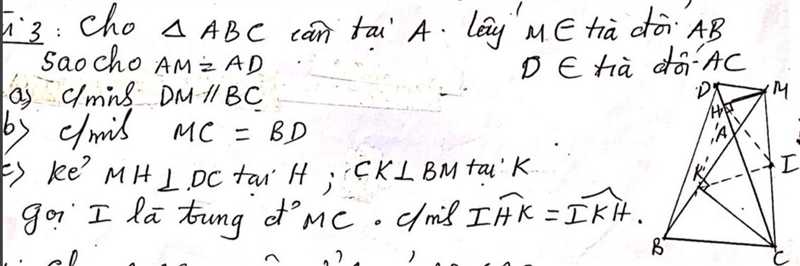 3: Cho Δ ABC cân tại A. lấy M ∈ tia đối AB
sao cho AM = AD D ∈ tia đối AC
a) c/minh DM // BC
b) c/mih MC = BD
c) kẻ MH ⊥ DC tại H ; CK ⊥ BM tại K
gọi I là trung đ° MC. c/mih IHK = IKH.
D M
H
A
I
K
B C